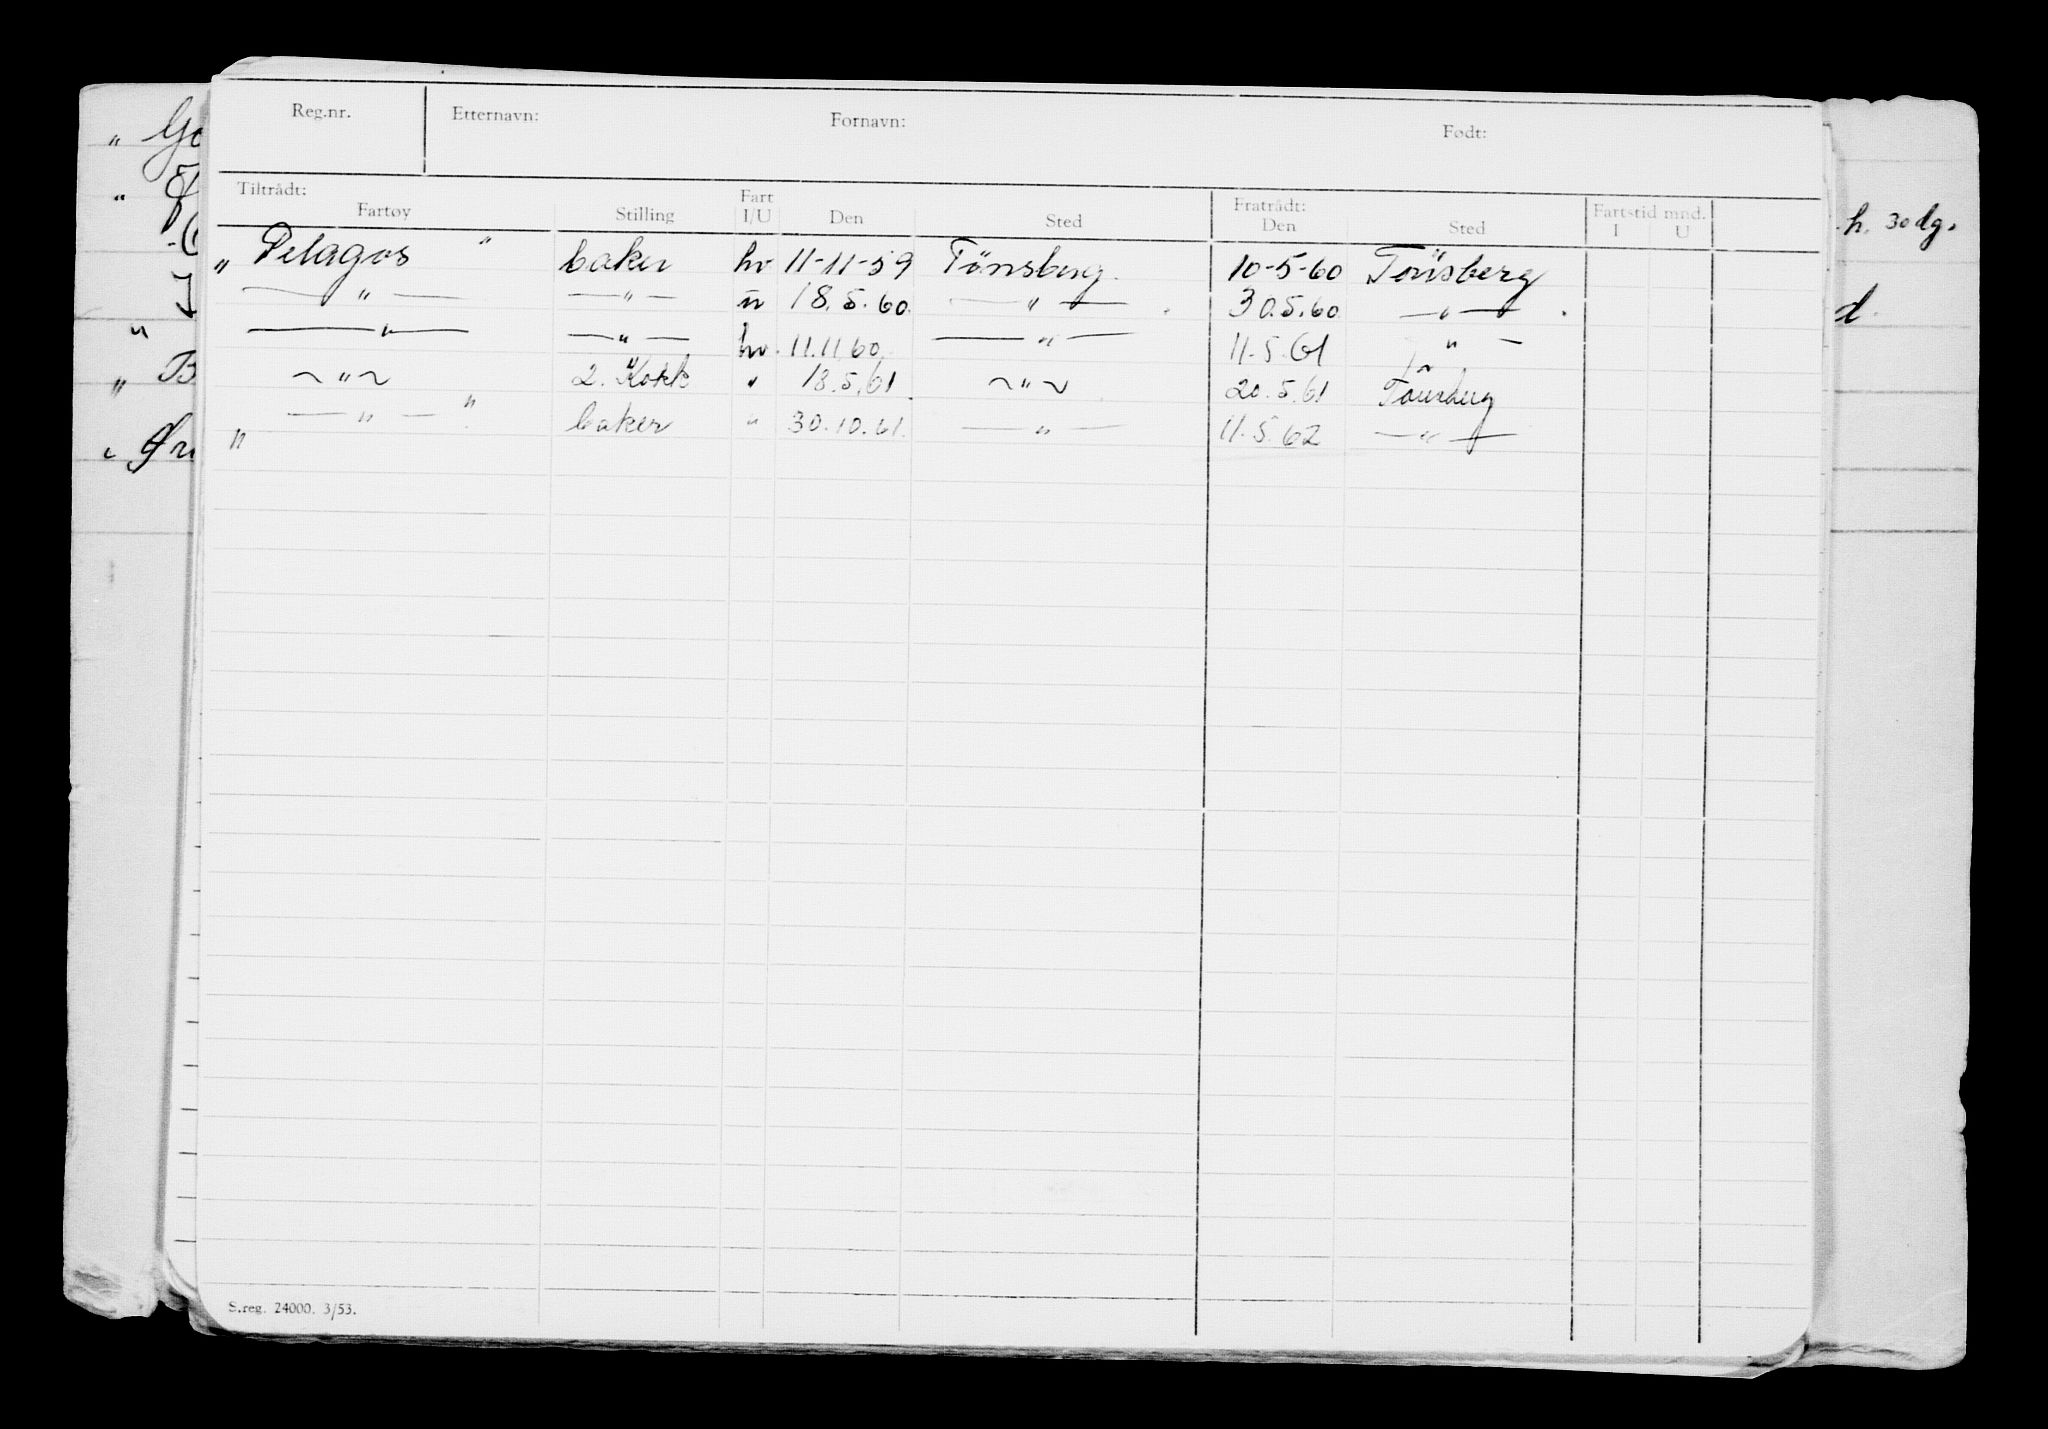 Reg.nr. Etternavn: Fornavn: Født:
Tiltrådt: Fratrådt:
Fartøy Stilling Fart I/U Den Sted Den Sted Fartstid mnd. I U
„ Pelagos " baker hv 11-11-59 Tönsberg. 10-5-60 Tönsberg
— " — — " — u 18.5.60. — " — 30.5.60 — " —
— " — — " — hv. 11.11.60. — " — 11.5.61 " —
~ " ~ 2. Kokk " 18.5.61. ~ " ~ 20.5.61 Tönsberg
„ — " — " baker " 30.10.61. — " — 11.5.62 — " —
S.reg. 24000. 3/53.
h. 30 dg.
d.